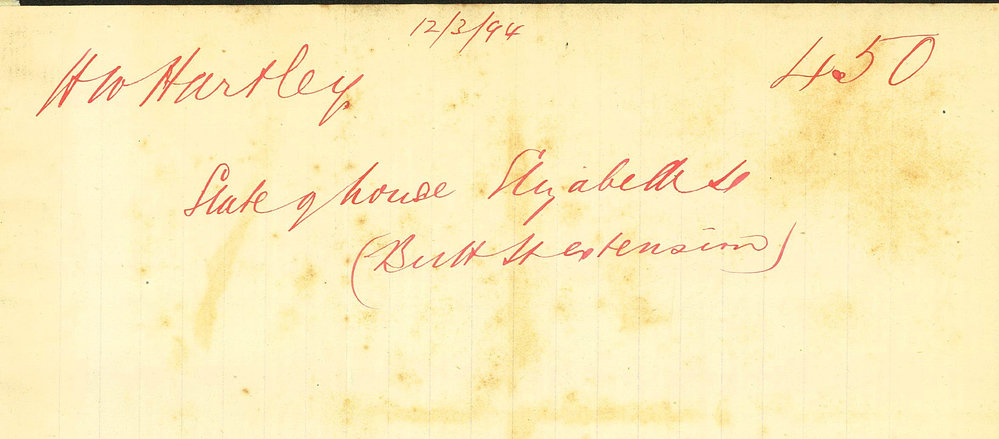 12/3/94
H W Hartley 450
State of house Elizabeth St
(Butt St extension)